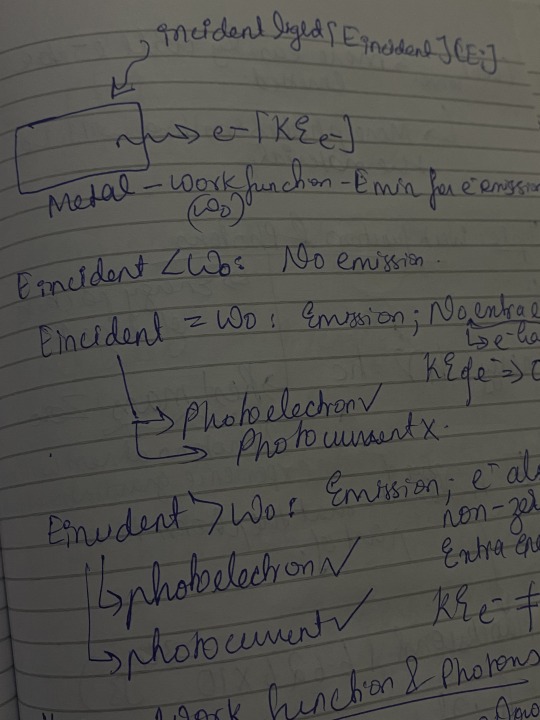 incident light [Eincident] (Ei]
e- [KEe-]
Metal - Work function - Emin for e- emission
(W0)
Eincident < W0: No emission.
Eincident = W0: Emission; No extra e
↳ e- ha
KE of e- => 0
→ Photoelectron ✓
→ Photocurrent x.
Eincident > W0: Emission; e- als
non-zer
Extra ene
↳ photoelectron ✓
KEe- ≠
↳ photocurrent ✓
Work function & Photons